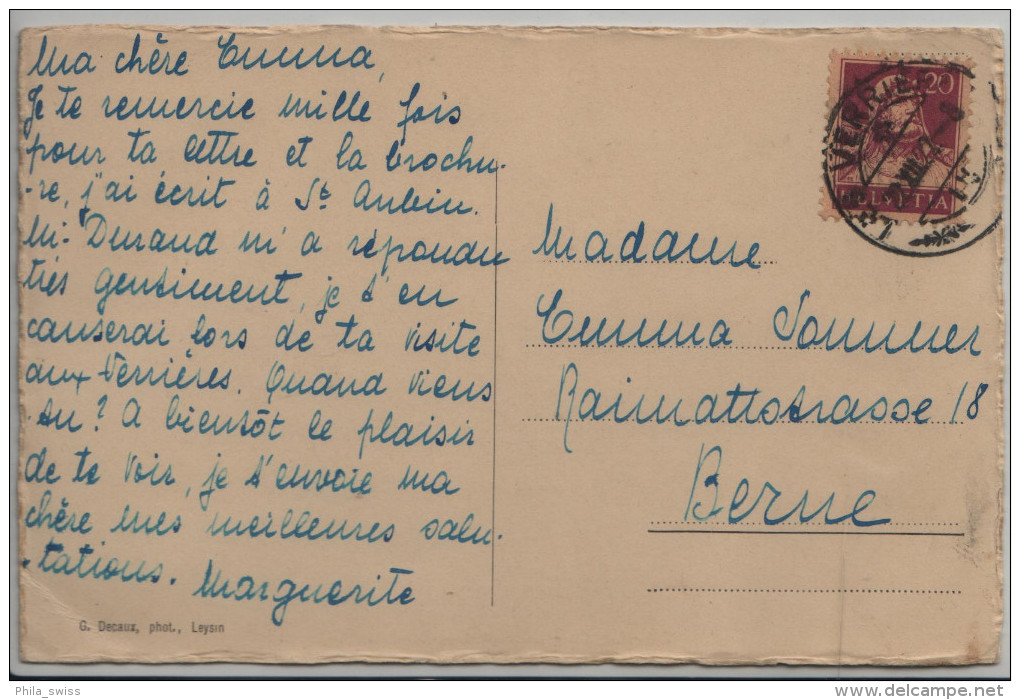 Ma chère Emma,
Je te remercie mille fois
pour ta lettre et la brochu-
-re, j'ai écrit à St. Aubin.
M. Durand m'a répondu
très gentiment, je t'en
causerai lors de ta visite
aux Verrières. Quand viens
-tu? A bientôt le plaisir
de te voir, je t'envoie ma
chère mes meilleures salu-
-tations. Marguerite
G. Decaux, phot., Leysin
20
HELVETIA
LES VERRIE
Madame
Emma Sommer
Raimattstrasse 18
Berne
Phila_swiss
www.delcampe.net